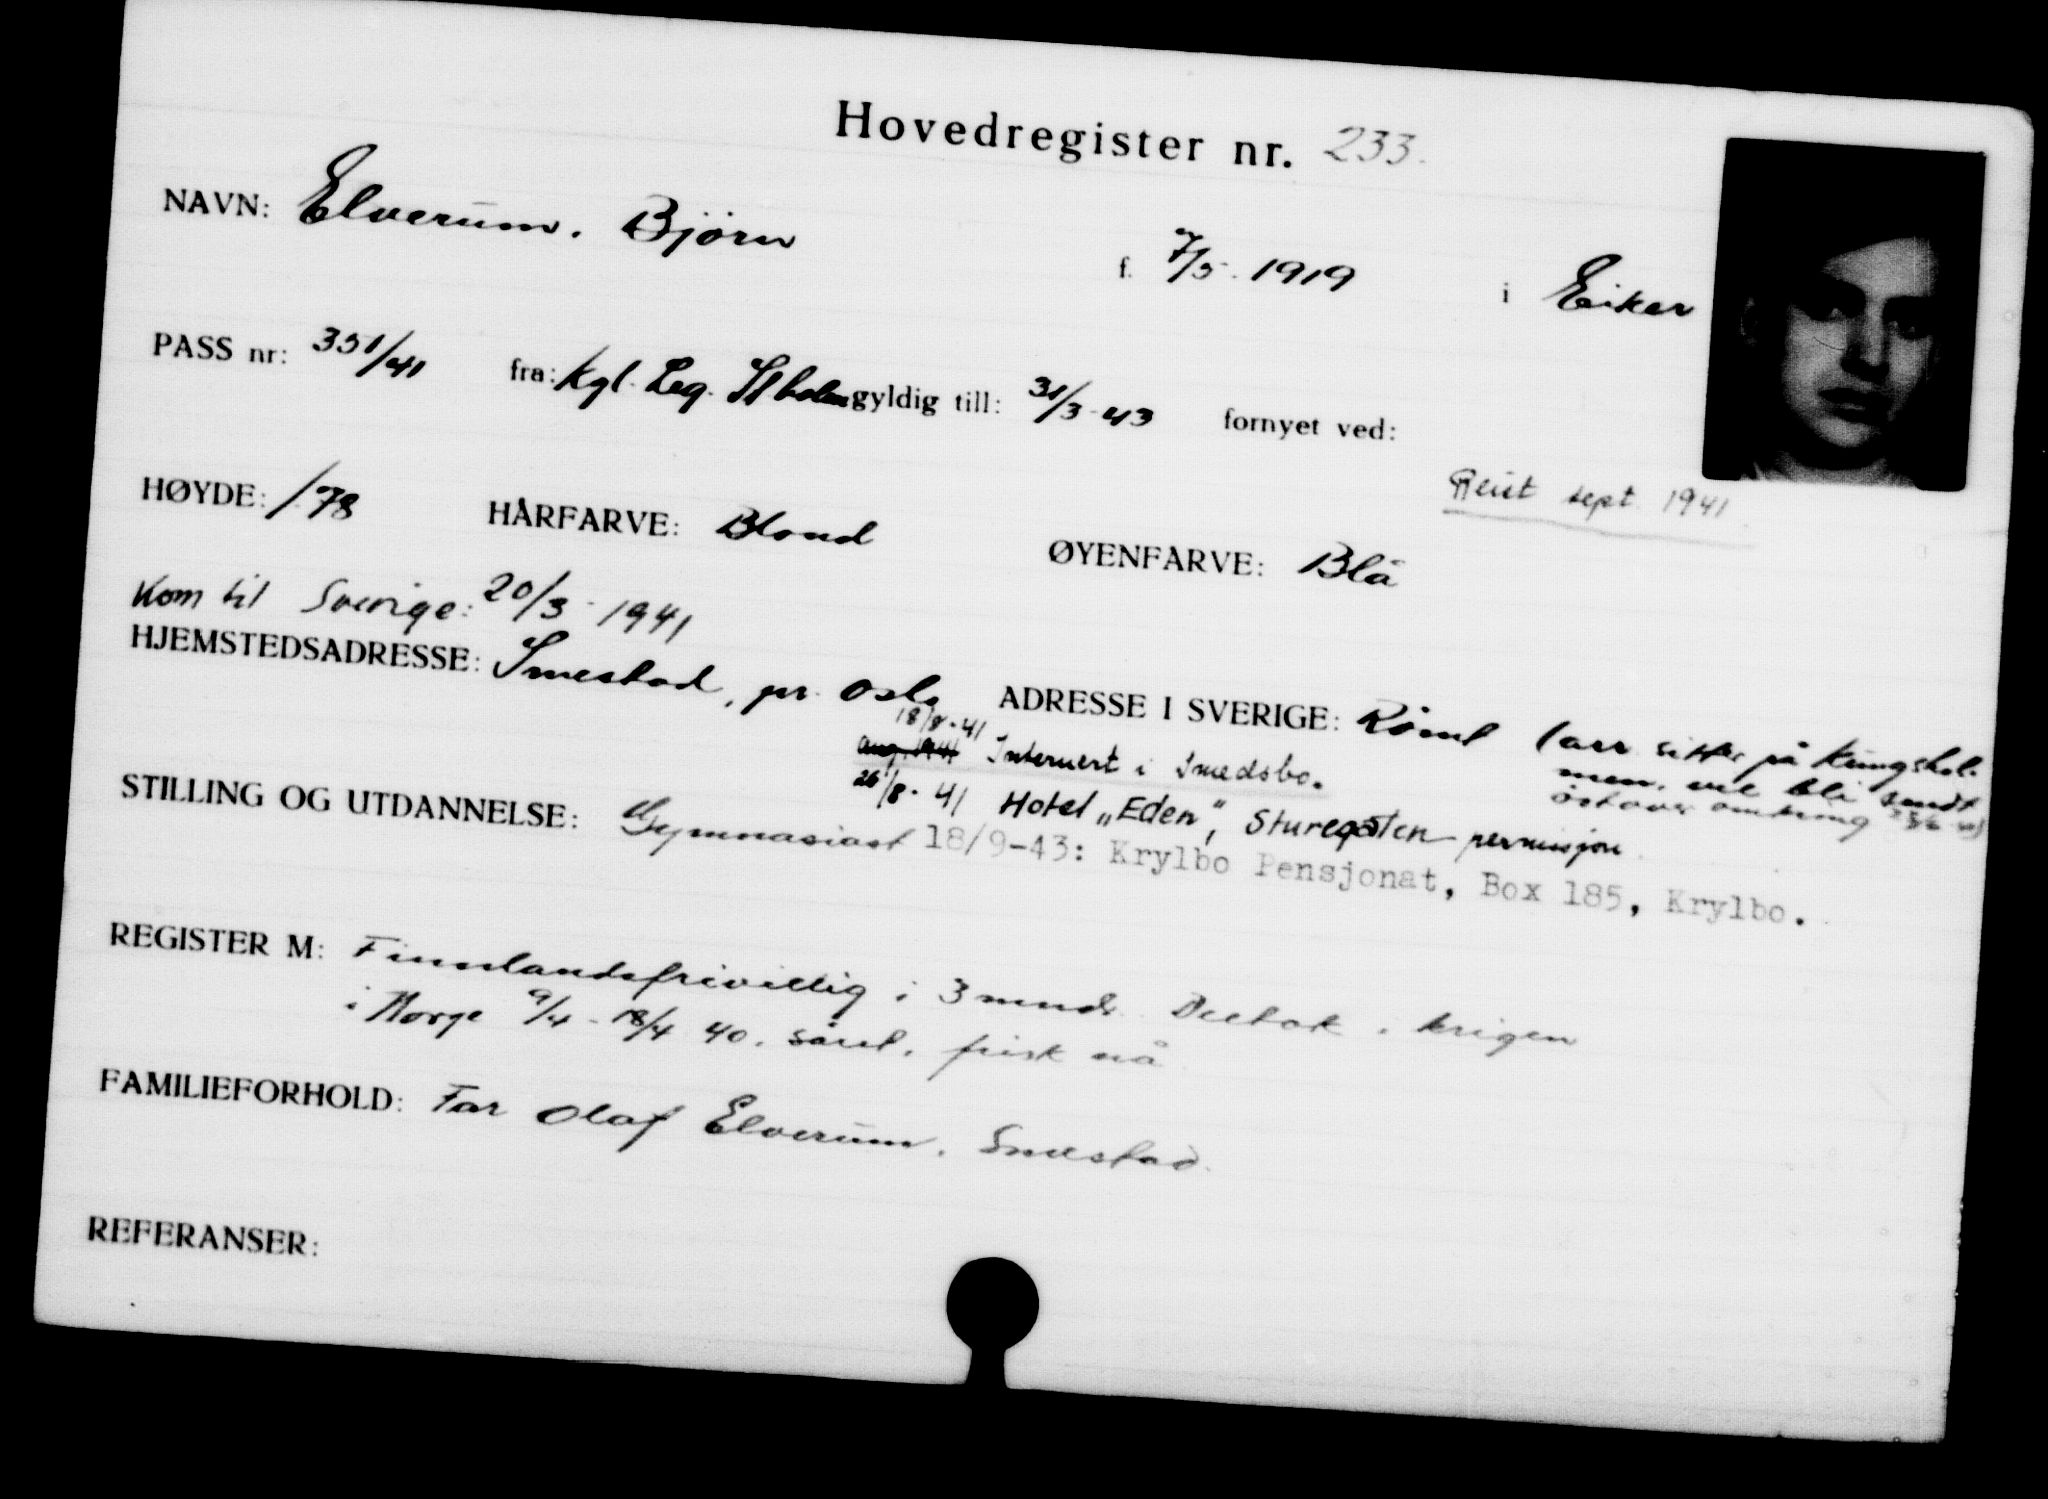 Hovedregister nr. 233.
NAVN: Elverum. Bjørn f. 7/5. 1919 i Eiker
PASS nr: 351/41 fra: Kgl. Leg. Stholm gyldig till: 31/3-43 fornyet ved:
Reist sept. 1941
HØYDE: 1.78 HÅRFARVE: Blond ØYENFARVE: Blå
Kom til Sverige: 20/3-1941
HJEMSTEDSADRESSE: Smestad, pr. Oslo ADRESSE I SVERIGE: Rømt (arr. sitter på Kungshol-
men. vil bli sendt
østover omkring
18/8-41
aug. 1941 Internert i Smedsbo.
26/8-41 Hotel „Eden", Sturegaten permisjon
STILLING OG UTDANNELSE: Gymnasiast 18/9-43: Krylbo Pensjonat, Box 185, Krylbo.
REGISTER M: Finnlandsfrivillig i 3 mndr. Deltok i krigen
i Norge 9/4-18/4 40. såret. frisk nå
FAMILIEFORHOLD: Far Olaf Elverum. Smestad.
REFERANSER: